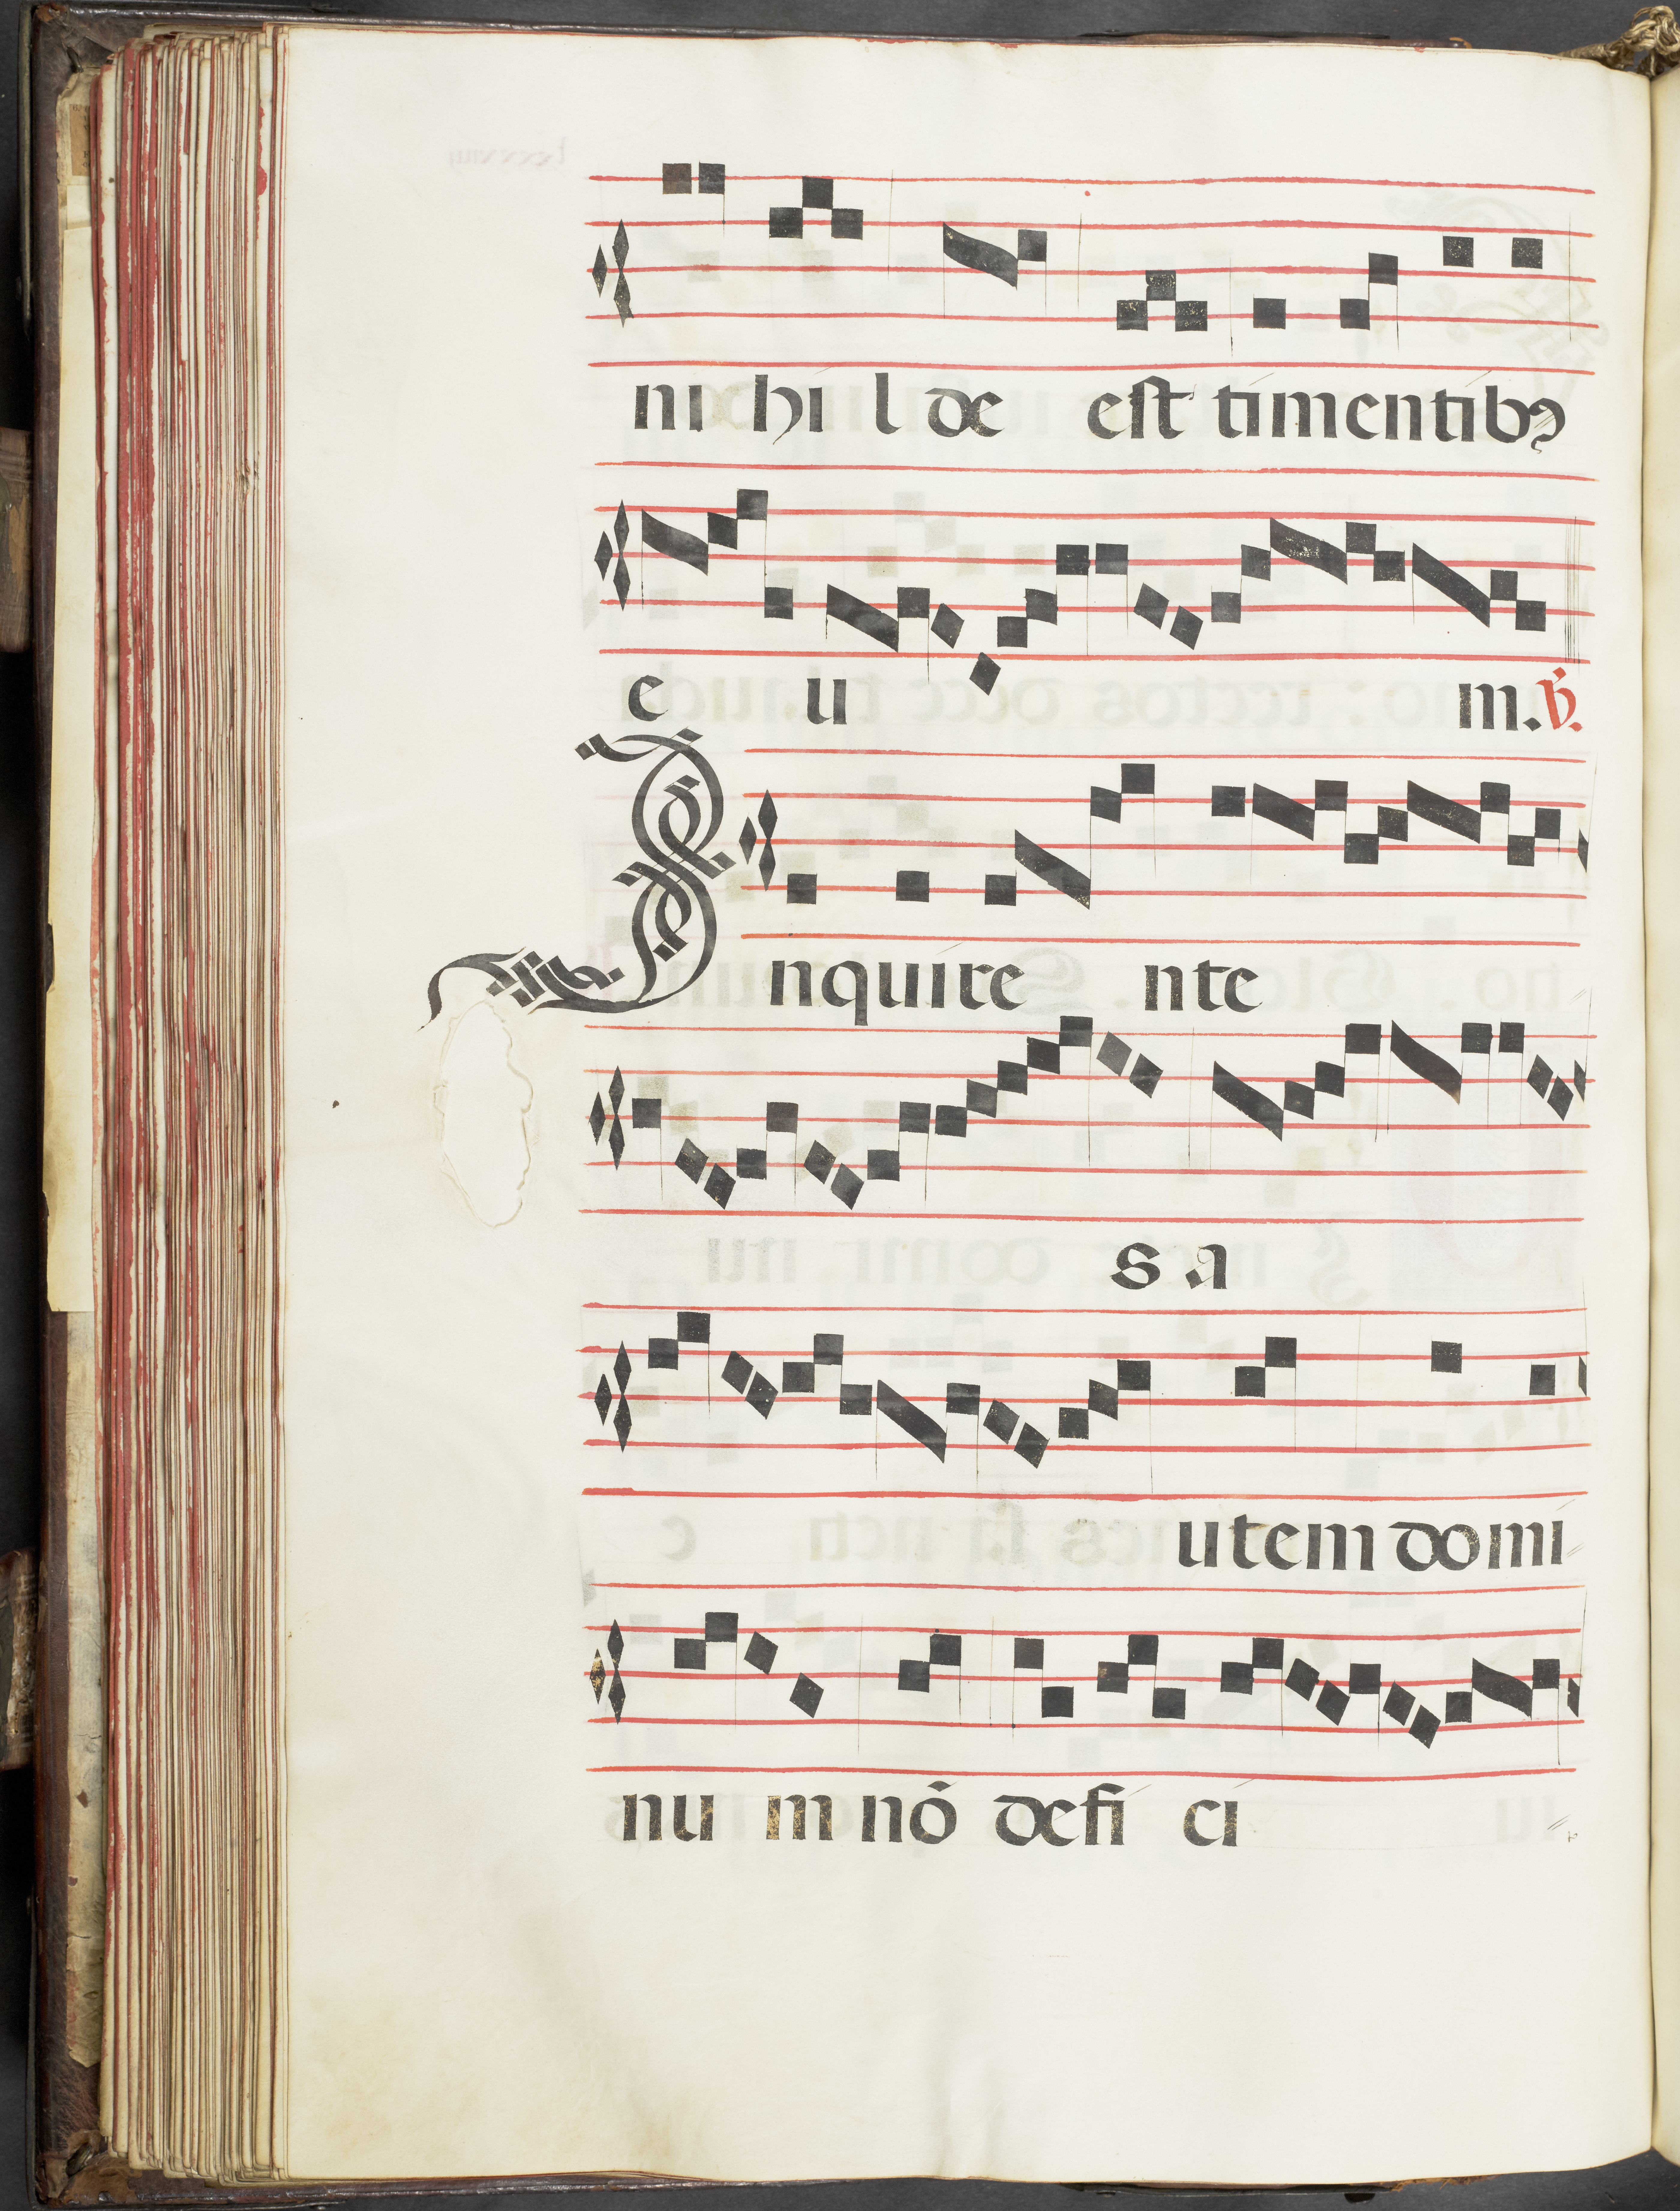 ni hi l de est timentibꝫ
e u m. ℣.
Inquire nte
s a
utem domi
nu m nō defi ci